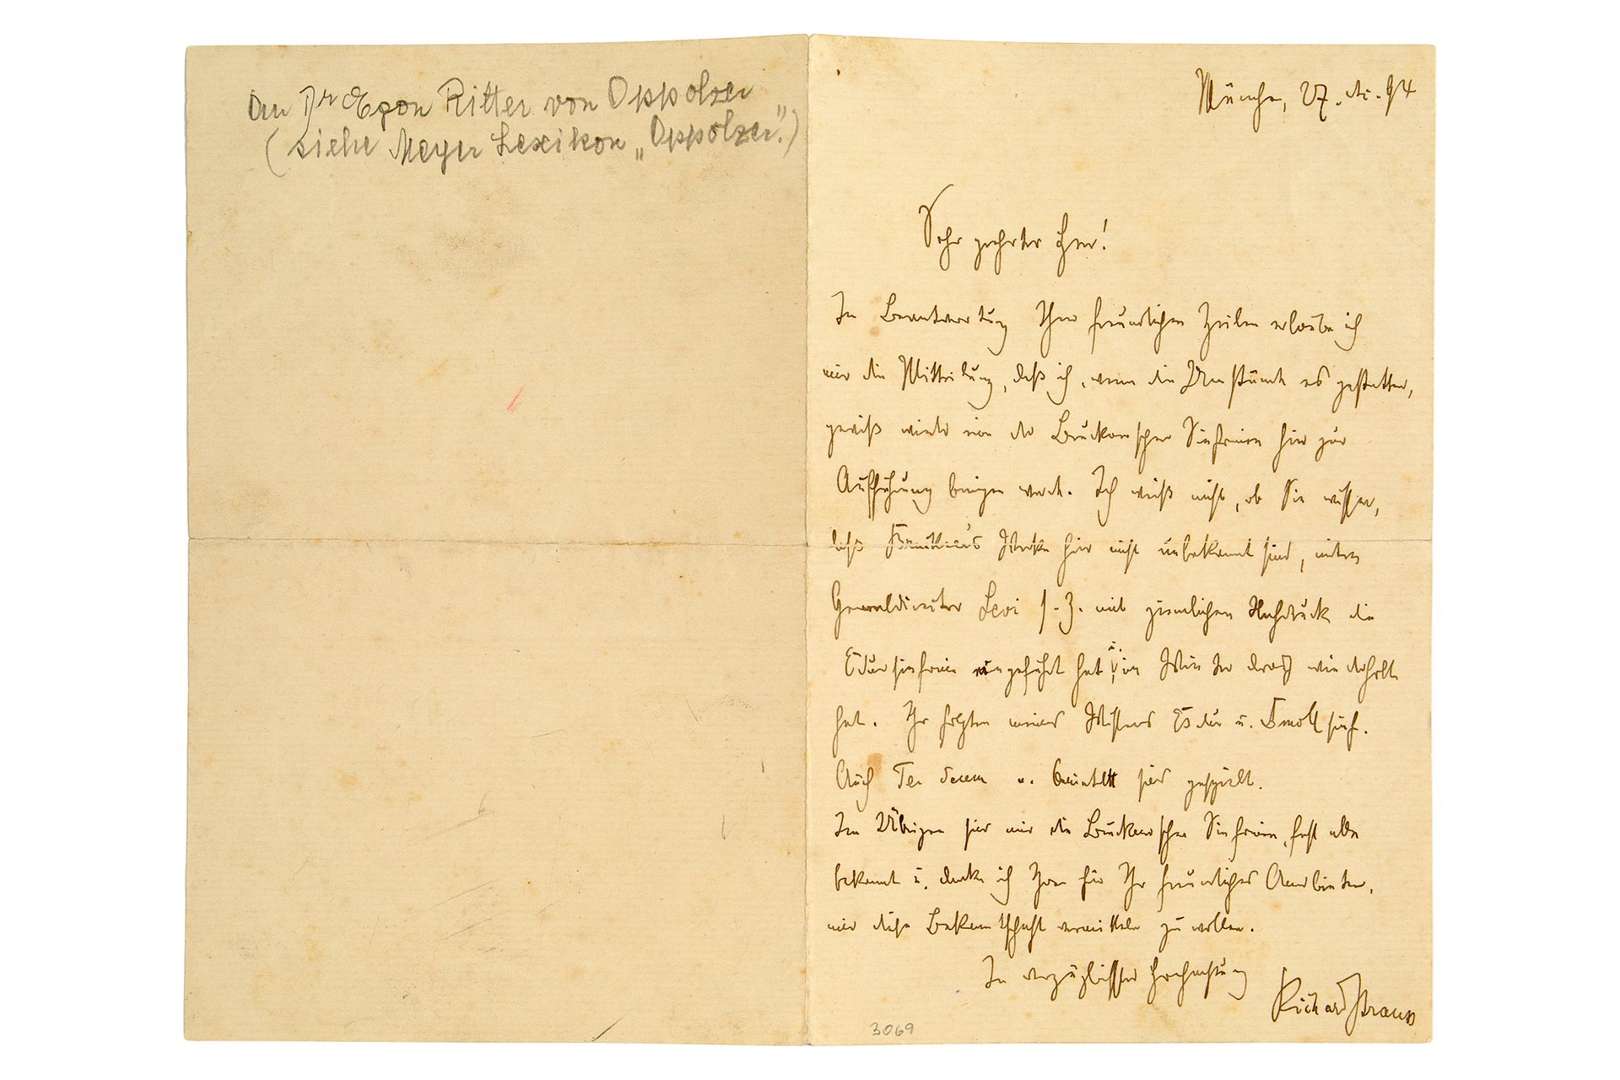 An Dr Egon Ritter von Oppolzer
(siehe Meyer Lexikon „Oppolzer".)
München, 27. 94
Sehr geehrter Herr!
In Beantwortung Ihrer freundlichen Zeilen erlaube ich
mir die Mitteilung, daß ich, wenn die Umstände es gestatten,
gewiß wieder eine der Brucknerschen Sinfonien hier zur
Aufführung bringen werde. Ich weiß nicht, ob Sie wissen,
daß Werke hier nicht unbekannt sind, indem
Generaldirektor Levi s. Z. mit ziemlichen Nachdruck die
Edursinfonie eingeführt hat u. im Winter drauf wiederholt
hat. Ihr folgten meines Wissens Esdur u. Dmoll sinf.
Auch Te deum u. sind gespielt.
Im Übrigen sind mir die Brucknerschen Sinfonien fast alle
bekannt u. danke ich Ihnen für Ihr freundliches Anerbieten,
mir diese Bekanntschaft vermitteln zu wollen.
In vorzüglichster Hochachtung
Richard Strauss
3069